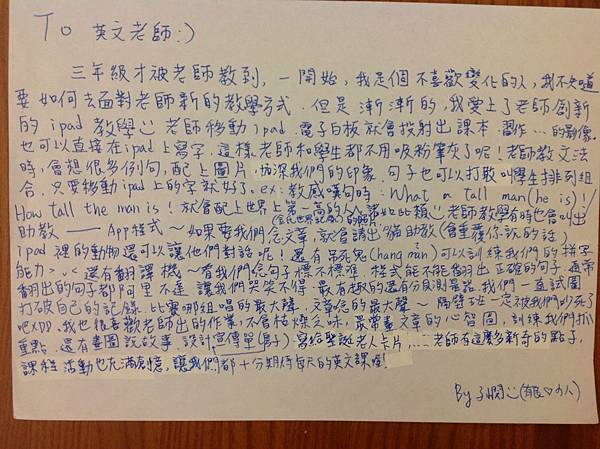 To 英文老師:)
三年級才被老師教到,一開始,我是個不喜歡變化的人,我不知道
要如何去面對老師新的教學方式.但是漸漸的,我愛上了老師創新
的ipad教學 老師移動ipad.電子白板就會投射出課本.習作...的影像.
也可以直接在ipad上寫字.這樣老師和學生都不用吸粉筆灰了呢!老師教文法
時,會想很多例句,配上圖片,加深我們的印象.句子也可以打散叫學生排列組
合.只要移動ipad上的字就好了.ex:教感嘆句時:What a tall man(he is)!
How tall the man is!就會配上世界上第一高的人 老師教學有時也會叫出
(金氏世界紀錄的照片)
助教——App程式~如果要我們念文章,就會請出貓助教(會重覆你說的話)
ipad裡的動物還可以讓他們對話呢!還有吊死鬼(hang man)可以訓練我們的拼字
能力>v<還有翻譯機~看我們念句子標不標準.程式能不能翻出正確的句子.通常
翻出的句子都阿里不達 讓我們哭笑不得.最有趣的還有分貝測量器.我們一直試圖
打破自己的記錄.比賽哪組唱的最大聲.文章念的最大聲~隔壁班一定被我們吵死了
吧XDD.我也很喜歡老師出的作業,不會枯燥乏味,最常畫文章的心智圖,訓練我們抓
重點.還有畫圖說故事.設計宣傳單 寫給聖誕老人卡片,....老師有這麼多新奇的點子,
課程活動也充滿創意,讓我們都十分期待每天的英文課喔!
By